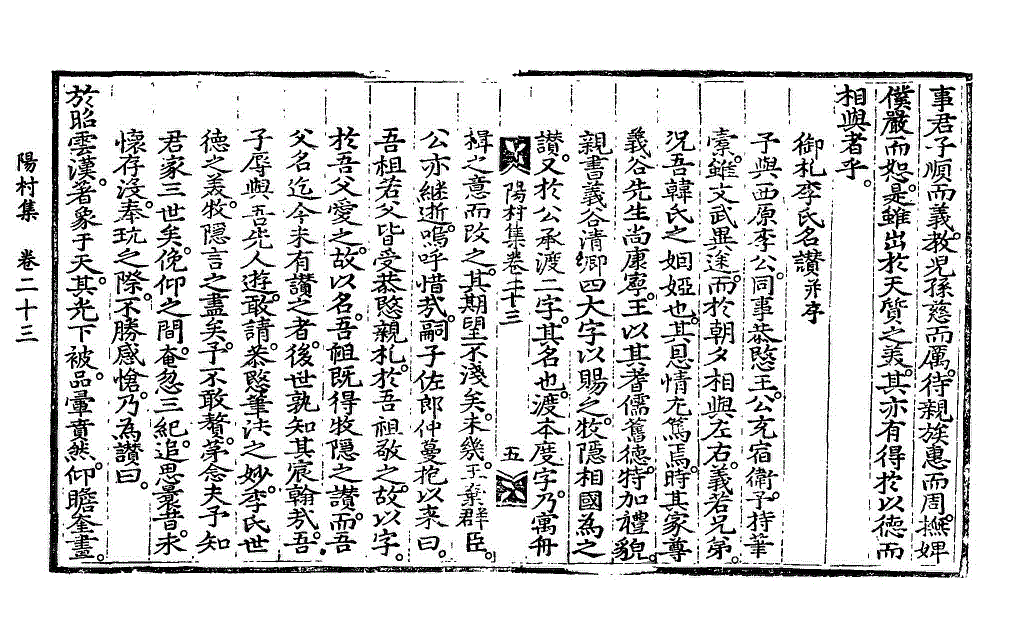 事君子順而義。敎兒孫慈而厲。待親族惠而周。撫婢
僕嚴而恕。是雖出於天質之美。其亦有得於以德而
相與者乎。
御札李氏名讚 幷序
予與西原李公。同事恭愍王。公充宿衞。予持筆
橐。雖文武異途。而於朝夕相與左右。義若兄弟。
况吾韓氏之姻婭也。其恩情尤篤焉。時其家尊
義谷先生尙康寧。王以其耆儒舊德。特加禮貌。
親書義谷淸卿四大字以賜之。牧隱相國爲之
讚。又於公承渡二字其名也。渡本度字。乃寓舟
陽村集卷二十三 五
楫之意而改之。其期望不淺矣。未幾。王棄群臣。
公亦繼逝。嗚呼惜哉。嗣子佐郞仲蔓抱以來曰。
吾祖若父皆受恭愍親札。於吾祖敬之。故以字。
於吾父愛之。故以名。吾祖旣得牧隱之讚。而吾
父名迄今未有讚之者。後世孰知其宸翰哉。吾
子辱與吾先人遊。敢請。恭愍筆法之妙。李氏世
德之美。牧隱言之盡矣。予不敢贅。第念夫予知
君家三世矣。俛仰之間。奄忽三紀。追思曩昔。未
懷存沒。奉玩之際。不勝感愴。乃爲讚曰。
於昭雲漢。著象于天。其光下被。品彙賁然。仰瞻奎畫。
陽村集 卷二十三